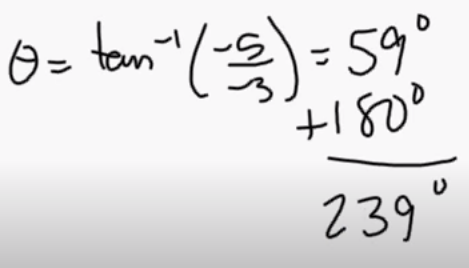 θ = tan⁻¹(-5/-3) = 59°
+180°
239°